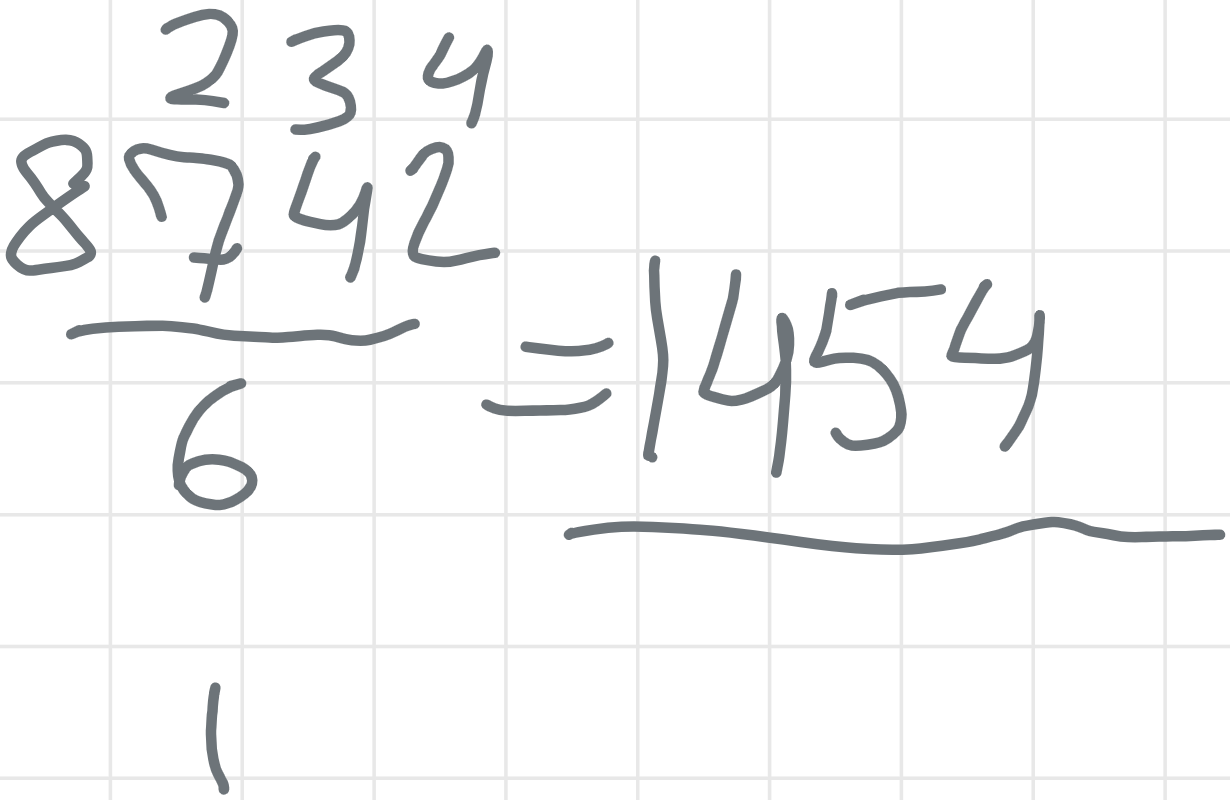 2 3 4
8742
= 1454
6
1